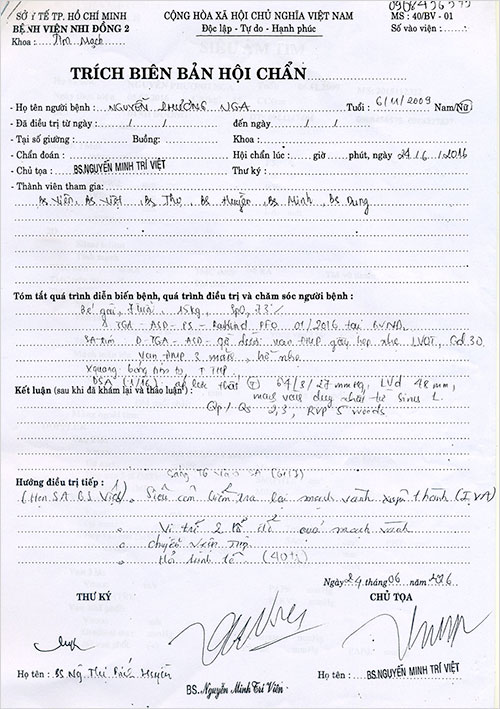 SỞ Y TẾ TP. HỒ CHÍ MINH
BỆNH VIỆN NHI ĐỒNG 2
Khoa: Tim Mạch
CỘNG HÒA XÃ HỘI CHỦ NGHĨA VIỆT NAM
Độc lập - Tự do - Hạnh phúc
MS : 40/BV - 01
Số vào viện :
TRÍCH BIÊN BẢN HỘI CHẨN
- Họ tên người bệnh : NGUYỄN PHƯƠNG NGA Tuổi : 6/11/2009 Nam/Nữ
- Đã điều trị từ ngày : / / đến ngày / /
- Tại số giường : Buồng: Khoa :
- Chẩn đoán : Hội chẩn lúc : giờ phút, ngày 24/6/2016
- Chủ tọa : BS.NGUYỄN MINH TRÍ VIỆT Thư ký :
- Thành viên tham gia:
Bs Viên, Bs Việt, Bs Thọ, Bs Huyền, Bs Minh, Bs Dung
Tóm tắt quá trình diễn biến bệnh, quá trình điều trị và chăm sóc người bệnh :
Bé gái, 7 tuổi, 15kg, SpO2 73%
TGA - ASD - PS - Rashkind PFO 01/2016 tại BVNĐ2
SA tim D-TGA - ASD van ĐMP gây hẹp nhẹ LVOT, Gd 30
Van ĐMP 3 mảnh, hở nhẹ
Xquang bóng tim to
DSA (1/16) áp lực thất (T) 64/8/27 mmHg, LVd 48 mm,
Kết luận (sau khi đã khám lại và thảo luận) :
mạch vành duy nhất từ sinus 1
Qp/Qs 2,3, RVP 5 woods
Hướng điều trị tiếp :
(Hẹn SA BS Việt) Siêu âm kiểm tra lại mạch vành xuyên thành (IVA)
Vị trí 2 lỗ đổ của mạch vành
Chuyển Viện Tim
(40tr)
Ngày 24 tháng 06 năm 2016
THƯ KÝ
CHỦ TỌA
Họ tên : BS. Ng Thị Huyền
BS. Nguyễn Minh Trí Viên
Họ tên : BS.NGUYỄN MINH TRÍ VIỆT